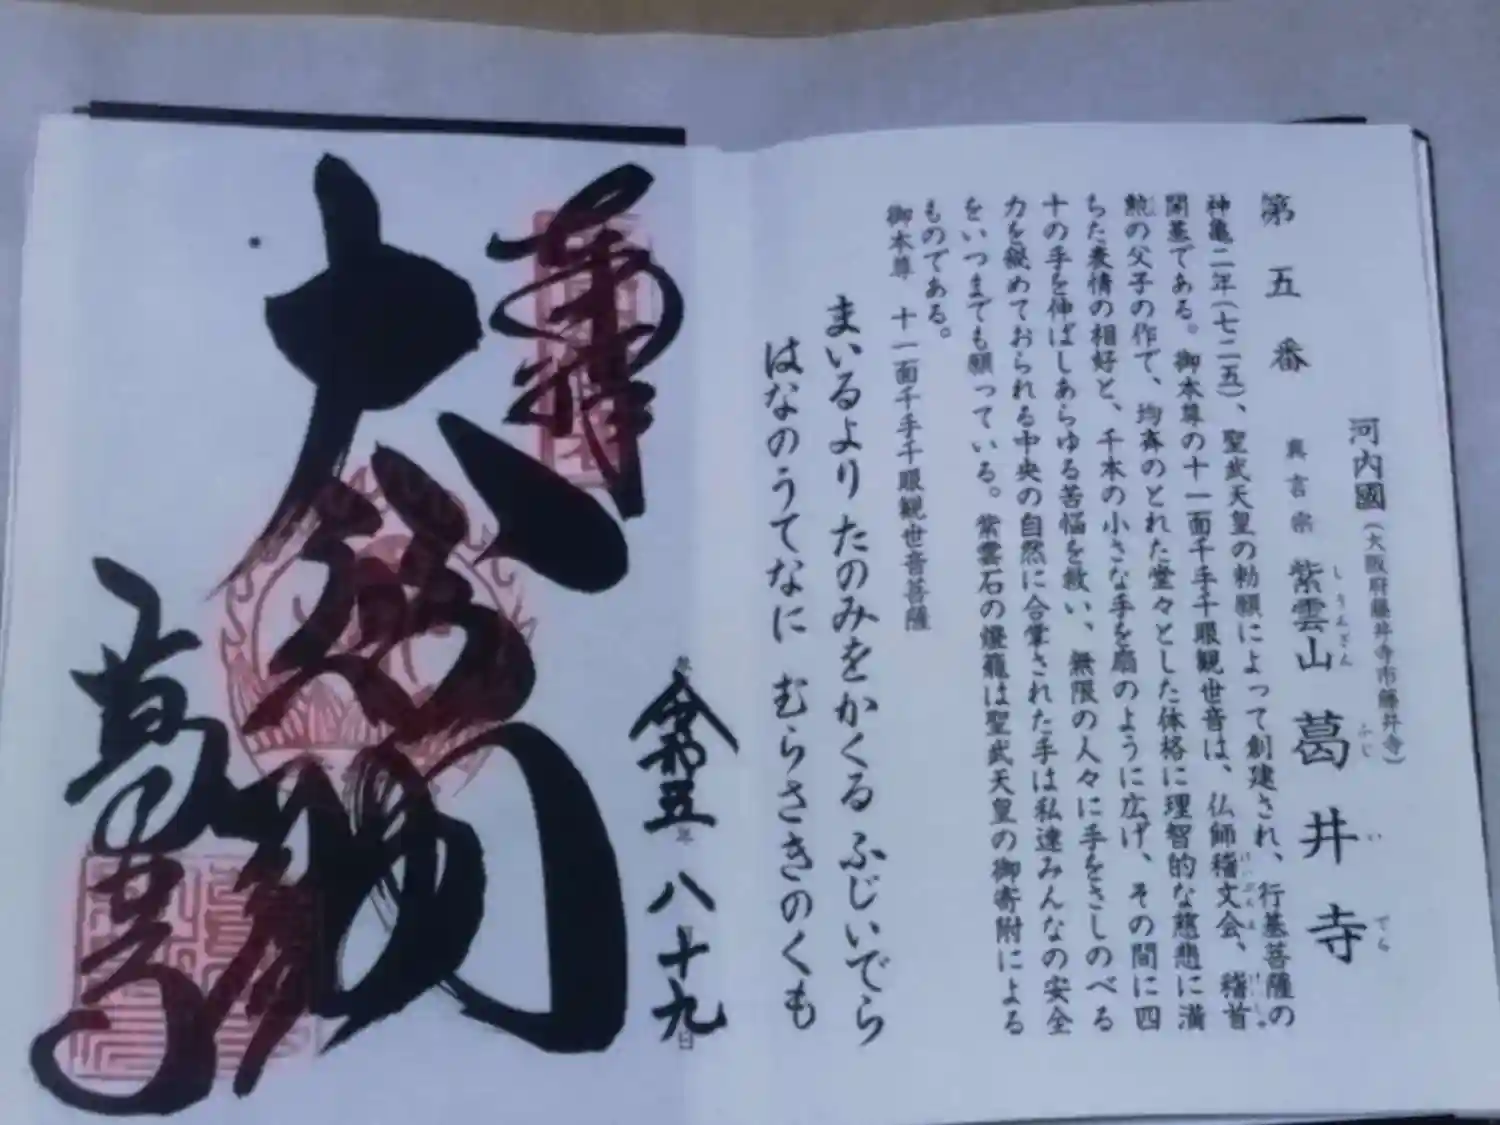 第五番
河内國(大阪府藤井寺市藤井寺)
真言宗 紫雲山 葛井寺
しうんざん ふじ い でら
神亀二年(七二五)、聖武天皇の勅願によって創建され、行基菩薩の
開基である。御本尊の十一面千手千眼観世音は、仏師稽文会、稽首
勲の父子の作で、均斉のとれた堂々とした体格に理智的な慈悲に満
ちた表情の相好と、千本の小さな手を扇のように広げ、その間に四
十の手を伸ばしあらゆる苦悩を救い、無限の人々に手をさしのべる
力を秘めておられる中央の自然に合掌された手は私達みんなの安全
をいつまでも願っている。紫雲石の燈籠は聖武天皇の御寄附による
ものである。
御本尊 十一面千手千眼観世音菩薩
まいるより たのみをかくる ふじいでら
はなのうてなに むらさきのくも
奉拝
令和五年八月十九日
大悲閣
葛井寺